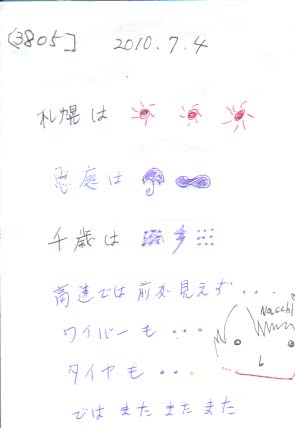 [3805] 2010.7.4
札幌は
恵庭は
千歳は
高速では前が見えず・・・
ワイパーも・・・
タイヤも・・・
Nacchi
ではまたまたまた